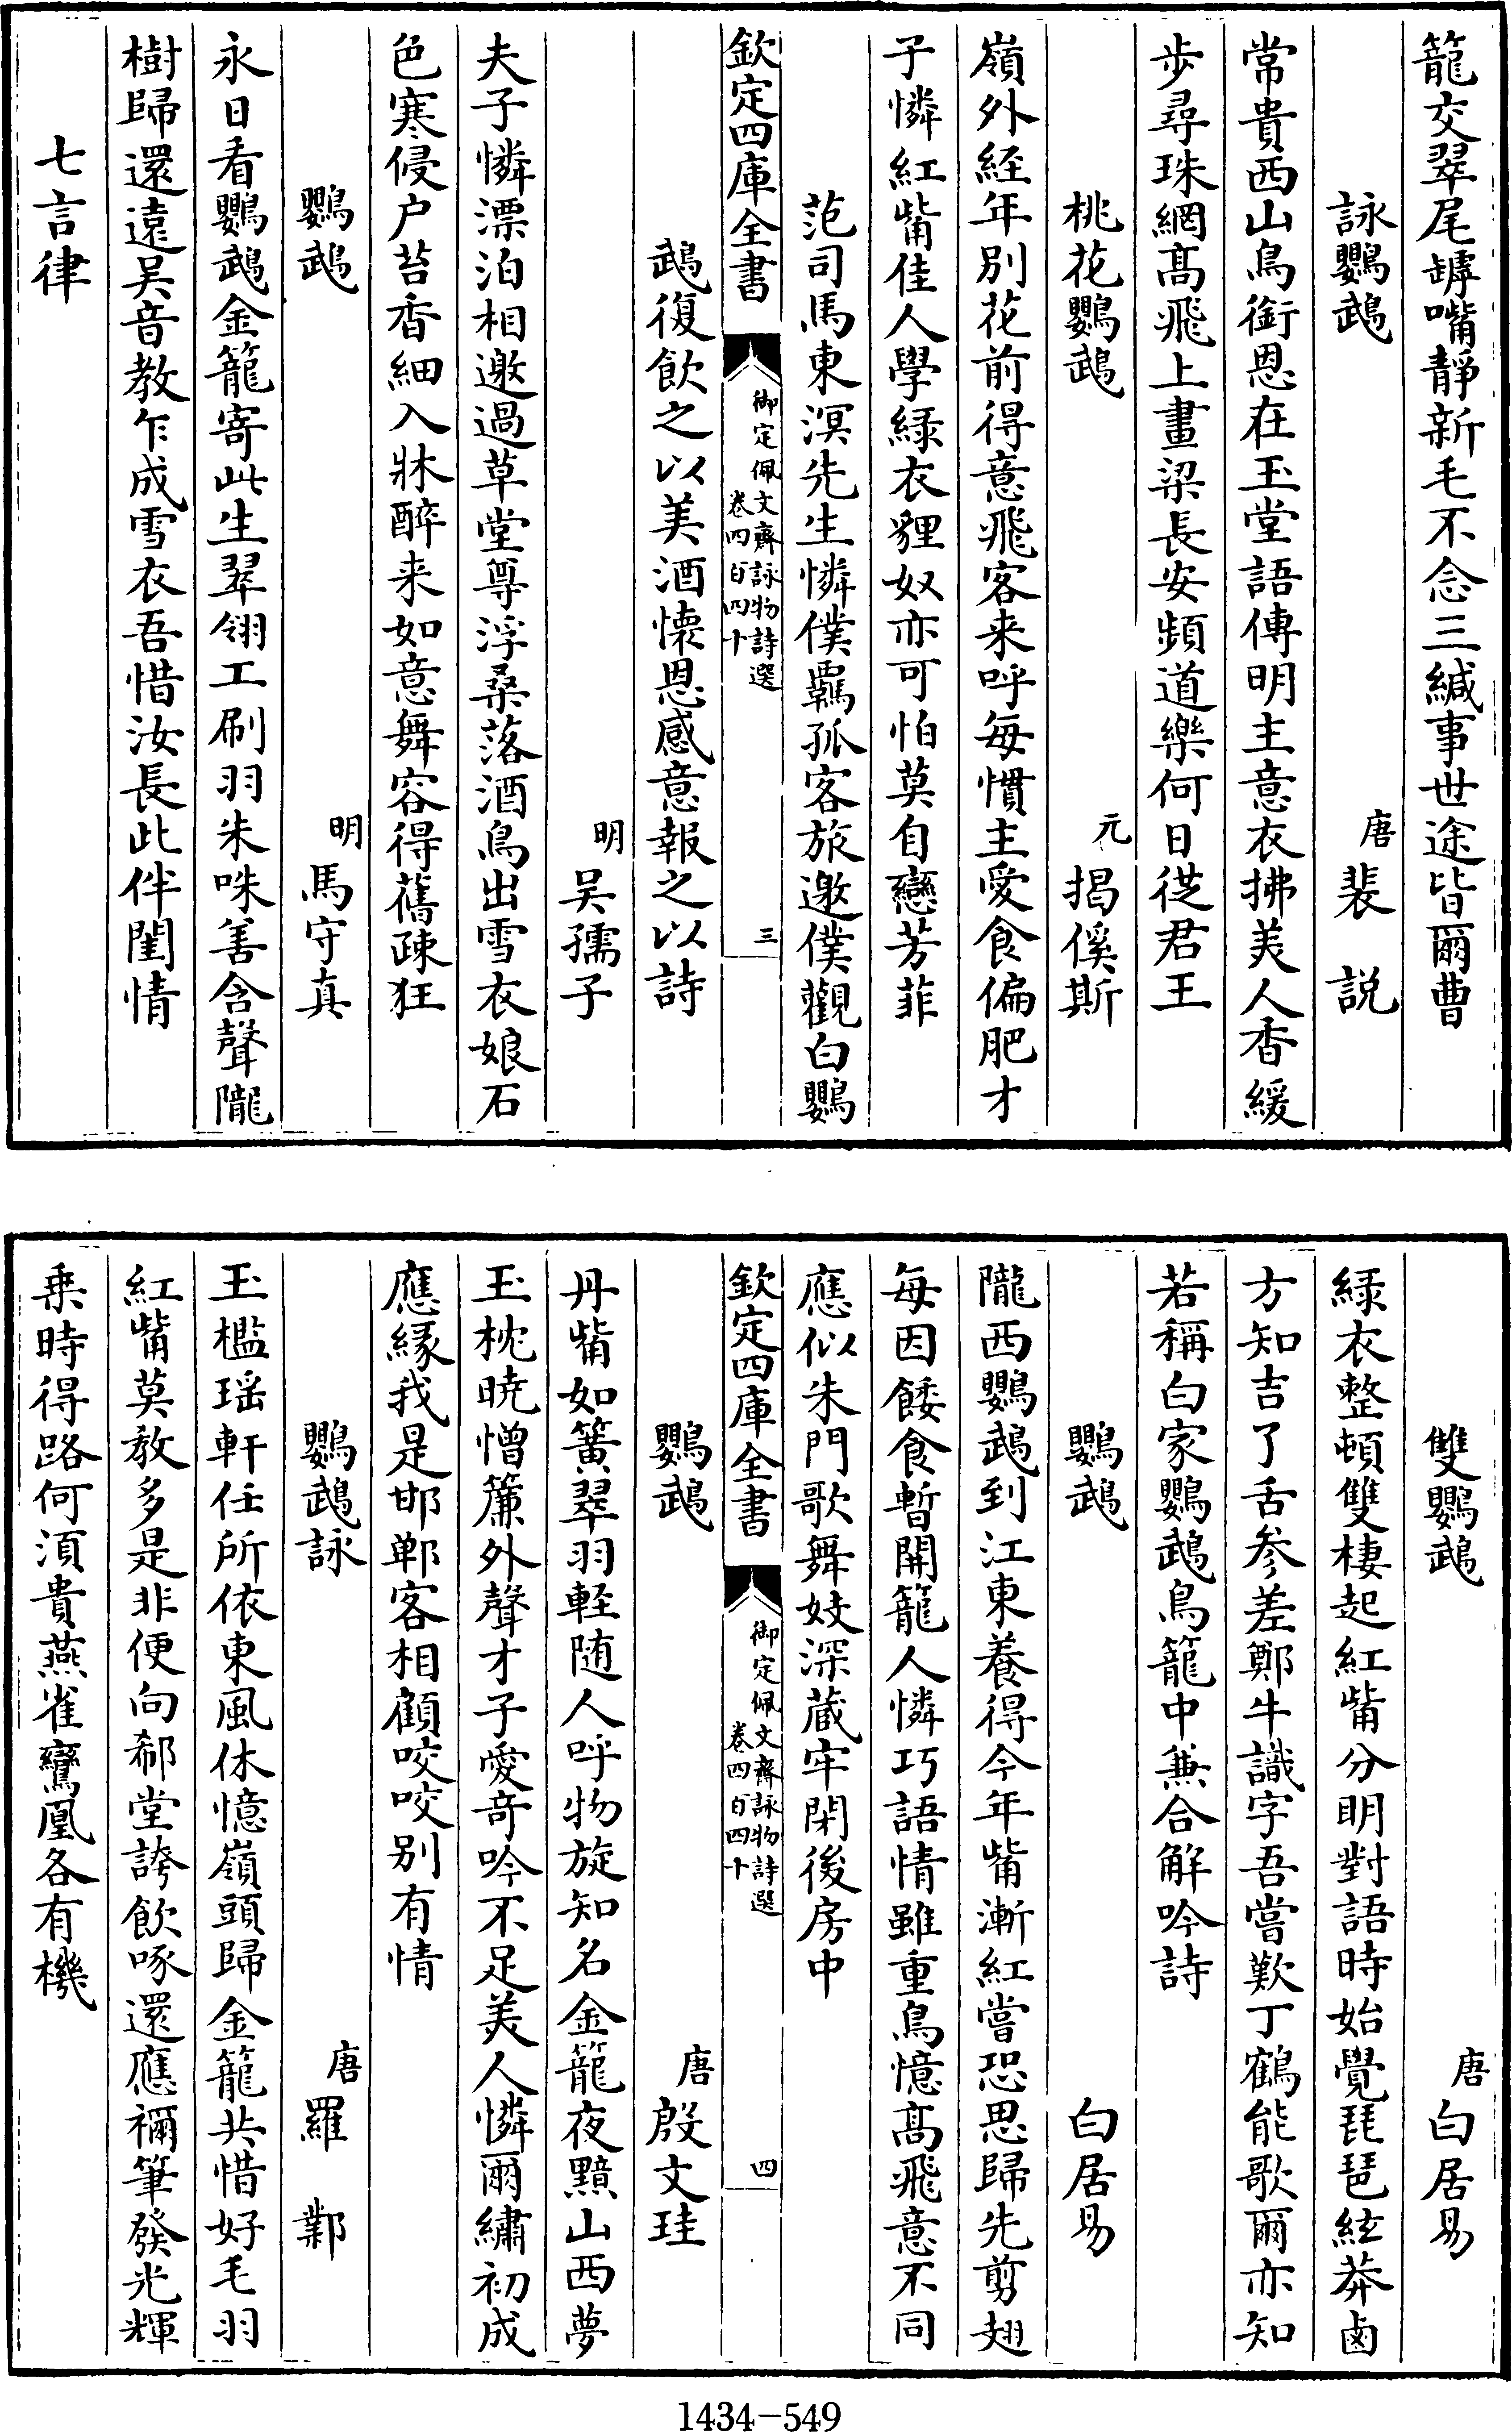 籠交翠尾罅嘴靜新毛不念三緘事世途皆爾曹
詠鸚鵡　唐裴　説
常貴西山鳥銜恩在玉堂語傳明主意衣拂美人香緩
步尋珠網髙飛上畫梁長安頻道樂何日從君王
桃花鸚鵡　元揭傒斯
嶺外経年别花前得意飛客来呼每慣主愛食偏肥才
子憐紅觜佳人學緑衣貍奴亦可怕莫自戀芳菲
范司馬東溟先生憐僕羈孤客旅邀僕觀白鸚
欽定四庫全書　御定佩文齋詠物詩選卷四百四十　三
鵡復飲之以美酒懐恩感意報之以詩
明吴孺子
夫子憐漂泊相邀過草堂尊浮桑落酒鳥出雪衣娘石
色寒侵户苔香細入牀醉来如意舞容得舊疎狂
鸚鵡　明馬守真
永日看鸚鵡金籠寄此生翠翎工刷羽朱咮善含聲隴
樹歸還逺吴音教乍成雪衣吾惜汝長此伴閨情
七言律
雙鸚鵡　唐白居易
緑衣整頓雙棲起紅觜分明對語時始覺琵琶絃莽鹵
方知吉了舌參差鄭牛識字吾嘗歎丁鶴能歌爾亦知
若稱白家鸚鵡鳥籠中兼合解吟詩
鸚鵡　白居易
隴西鸚鵡到江東養得今年觜漸紅嘗恐思歸先剪翅
每因餧食暫開籠人憐巧語情雖重鳥憶髙飛意不同
應似朱門歌舞妓深藏牢閉後房中
欽定四庫全書　御定佩文齋詠物詩選卷四百四十　四
鸚鵡　唐殷文珪
丹觜如簧翠羽軽随人呼物旋知名金籠夜黯山西夢
玉枕曉憎簾外聲才子愛奇吟不足美人憐爾繡初成
應緣我是邯鄲客相顧咬咬别有情
鸚鵡詠　唐羅　鄴
玉檻瑶軒任所依東風休憶嶺頭歸金籠共惜好毛羽
紅觜莫教多是非便向郗堂誇飲啄還應禰筆發光輝
乗時得路何湏貴燕雀鸞凰各有機
1434-549